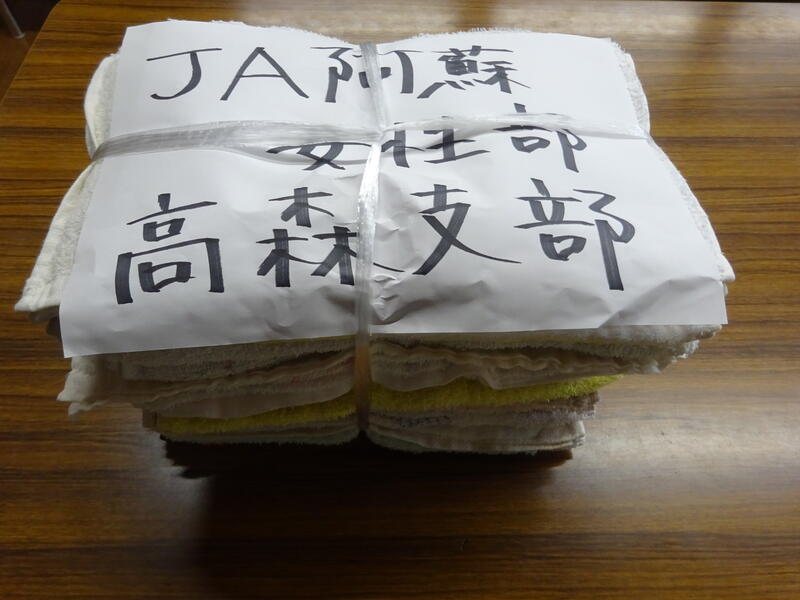 JA阿蘇
女性部
高森支部